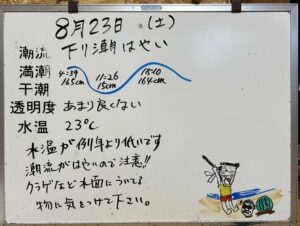 8月23日 (土)
潮流 下り潮はやい
満潮 4:39 165cm 15:10 164cm
干潮 11:26 15cm
透明度 あまり良くない
水温 23℃
水温が例年より低いです
潮流がはやいので注意!!
クラゲなど水面にういてる
物に気をつけて下さい。